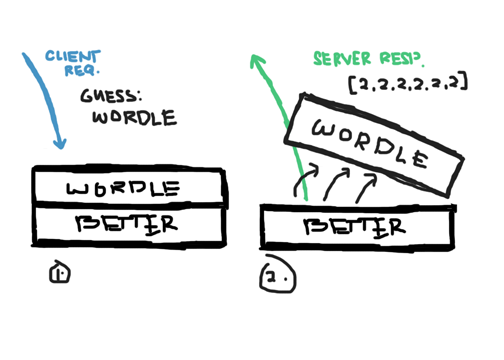 CLIENT
REQ.
GUESS:
WORDLE
WORDLE
BETTER
1.
SERVER RESP.
[2,2,2,2,2,2]
WORDLE
BETTER
2.